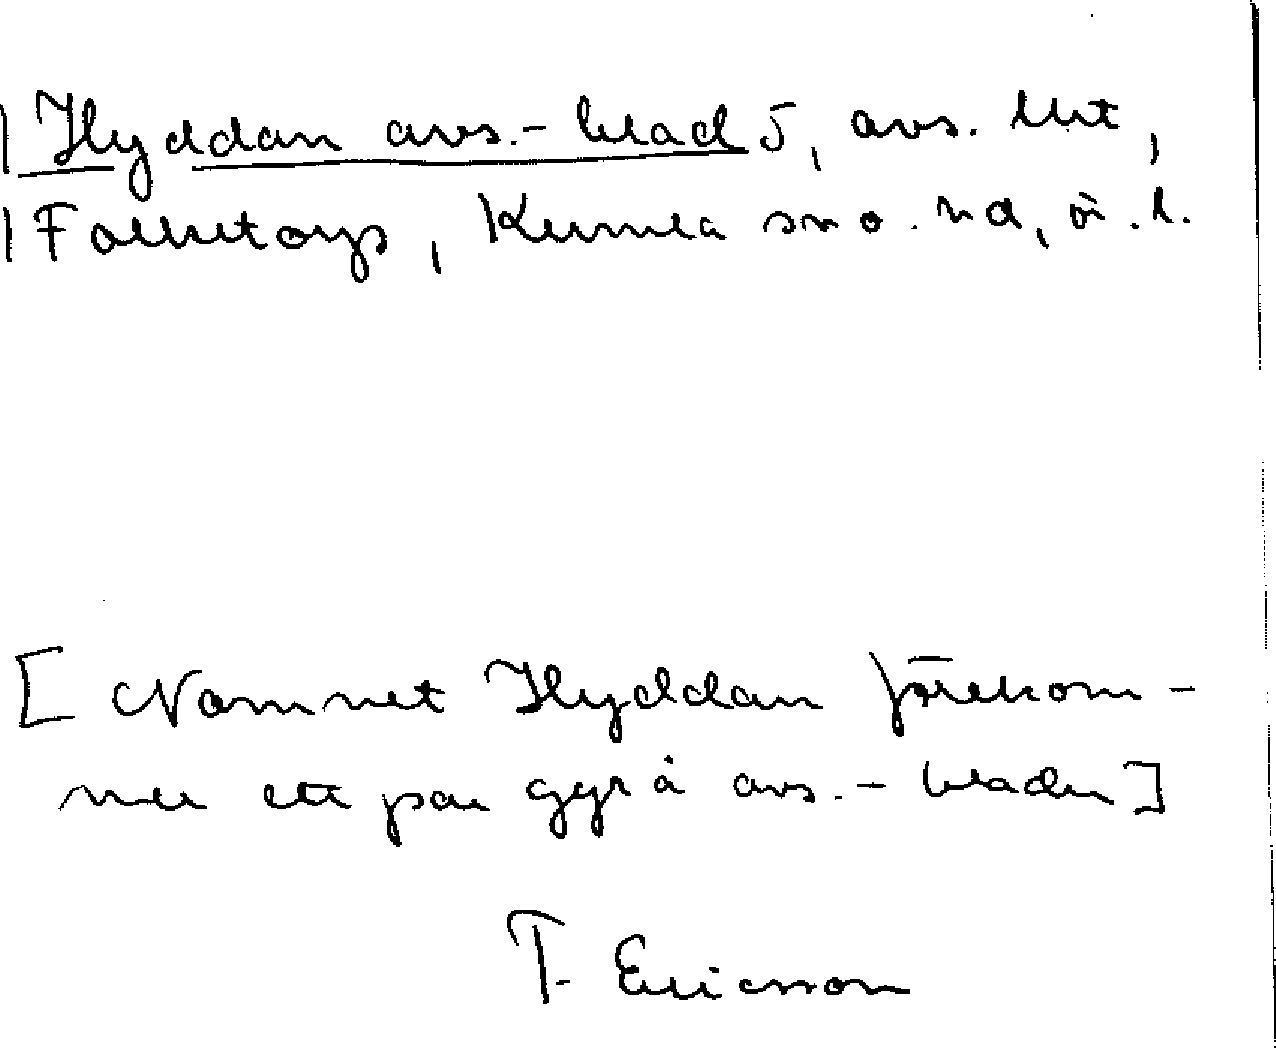 Hyddan avs.-blad 5, avs. lht,
Folketorp, Kumla sn o. hd, ö. l.
[Namnet Hyddan förekom-
mer ett par ggr å avs.-bladen]
T. Ericsson